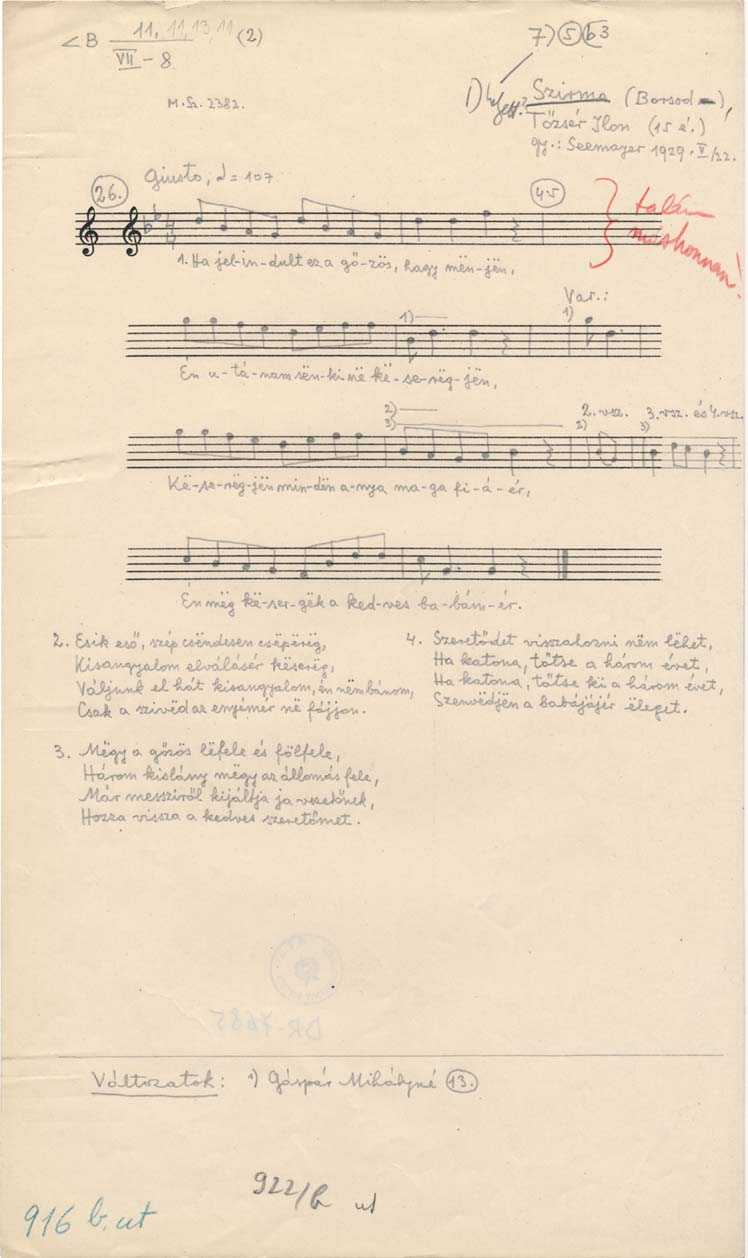 < B 11, 11, 13, 11 (2)
VII - 8
7) 5 b3
M. Sz. 2382.
1)
Szirma (Borsod),
Tőzsér Ilon (15 é.)
gy.: Seemayer 1929. V/22.
26.
Giusto, = 107.
45
talán
máshonnan!
1. Ha jel-in-dult ez a gő-zös, hagy mën-jën,
1)
Var.:
1)
Én u-tá-nam sën-ki në kë-se-rëg-jën,
2)
3)
2. vsz.
2)
3. vsz. és 4. vsz.
3)
Kë-se-rëg-jën min-dën a-nya ma-ga fi-á-ér,
Én mëg kë-ser-gëk a ked-ves ba-bám-ér.
2. Esik eső, szép csëndesen csëpërëg,
Kisangyalom elválásér këserëg,
Váljunk el hát kisangyalom, én nëm bánom,
Csak a szivëd az enyimér në fájjon.
3. Mëgy a gőzös lëfele és fölfele,
Három kislány mëgy az állomás fele,
Már messziről kijáltja ja vezetőnek,
Hozza vissza a kedves szeretőmet.
4. Szeretődet visszahozni nëm lëhet,
Ha katona, tőtse a három évet,
Ha katona, tőtse ki a három évet,
Szenvedjën a babájájér ëleget.
DR-7685
Változatok: 1) Gáspár Mihályné 13.
922/b ut
916 b. ut